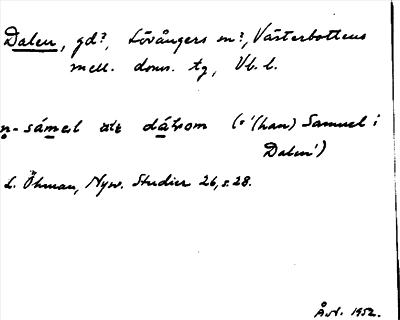 Dalen, gd?, Lövångers sn?, Västerbottens
mell. doms. tg, Vb. l.
n-sámel dálom (= '(han) Samuel i
Dalen')
L. Öhman, Nysv. Studier 26, s. 28.
Åvl. 1952.